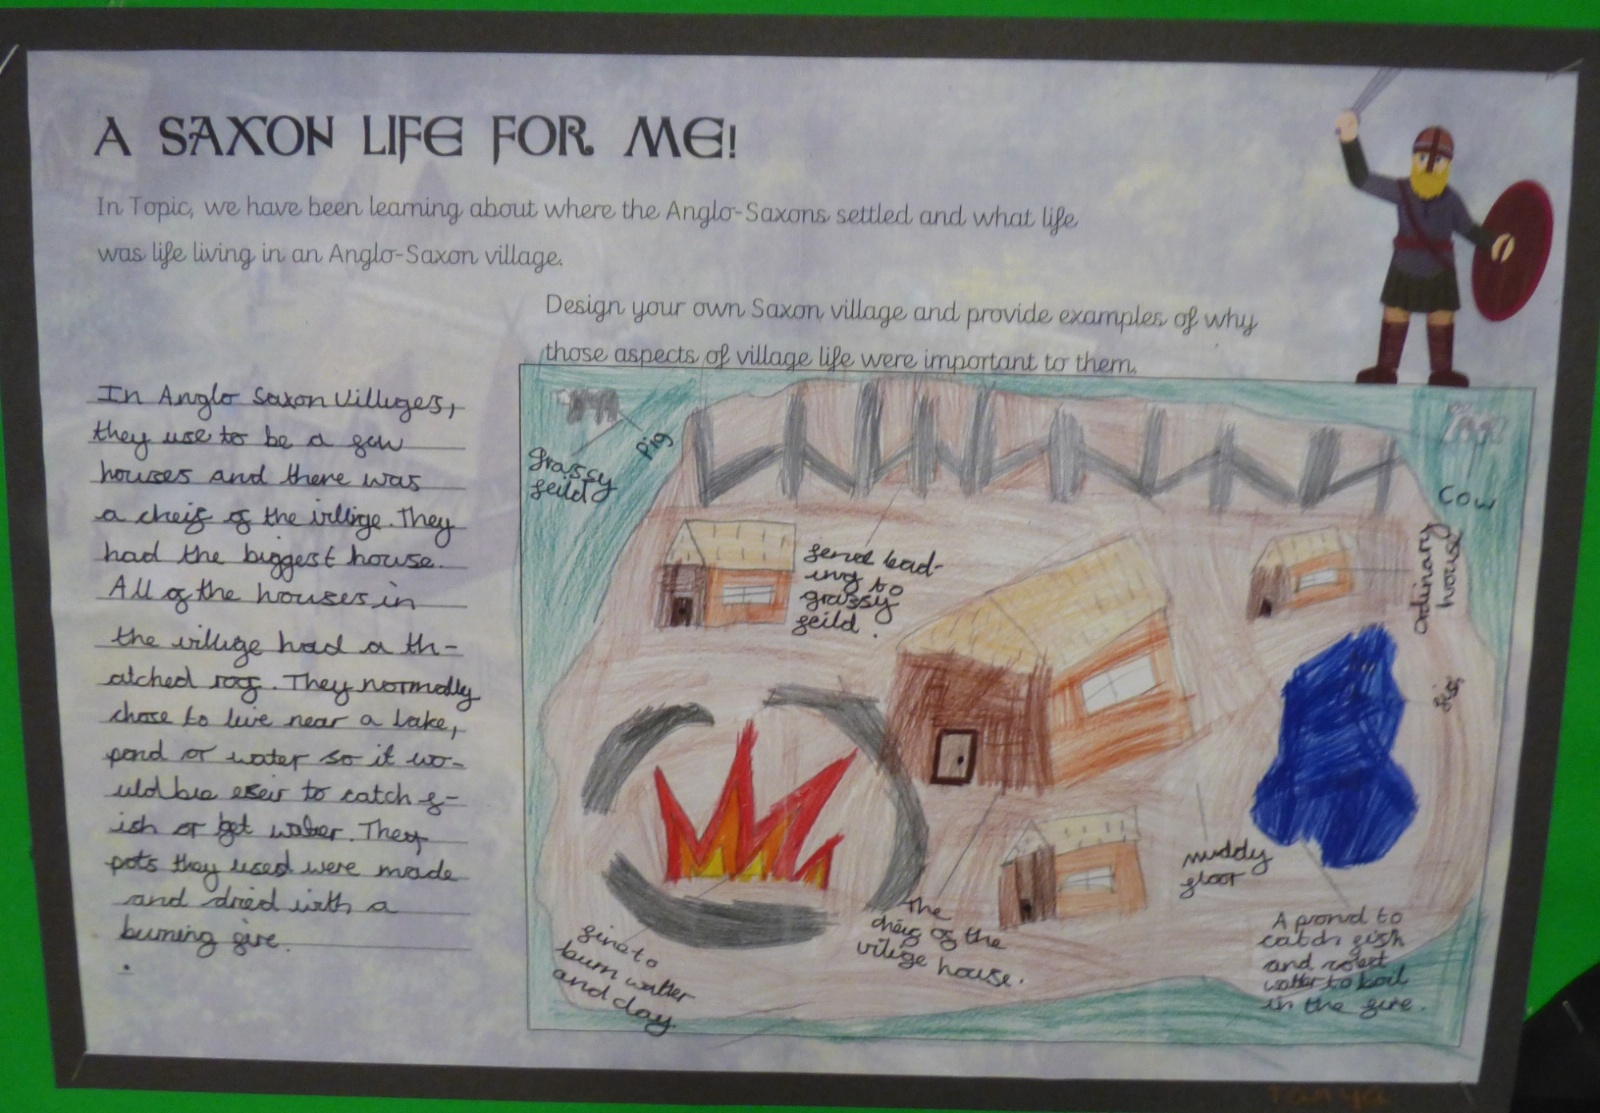 A SAXON LIFE FOR ME!
In Topic, we have been learning about where the Anglo-Saxons settled and what life
was life living in an Anglo-Saxon village.
Design your own Saxon village and provide examples of why
those aspects of village life were important to them.
In Anglo Saxon Villuges,
they use to be a few
houses and there was
a cheif of the villige. They
had the biggest house.
All of the houses in
the villuge had a th-
atched roof. They normally
chose to live near a lake,
pond or water so it wo-
uld be to catch f-
ish or get water. They
pots they used were made
and dried with a
burning fire.
.
grassy
feild
pig
fence lead-
ing to
grassy
feild.
Cow
ordinary
house
muddy
floor
A pond to
catch fish
and
watter to boil
in the fire.
The
cheif of the
villige house.
fire to
burn watter
and clay.
Tanya